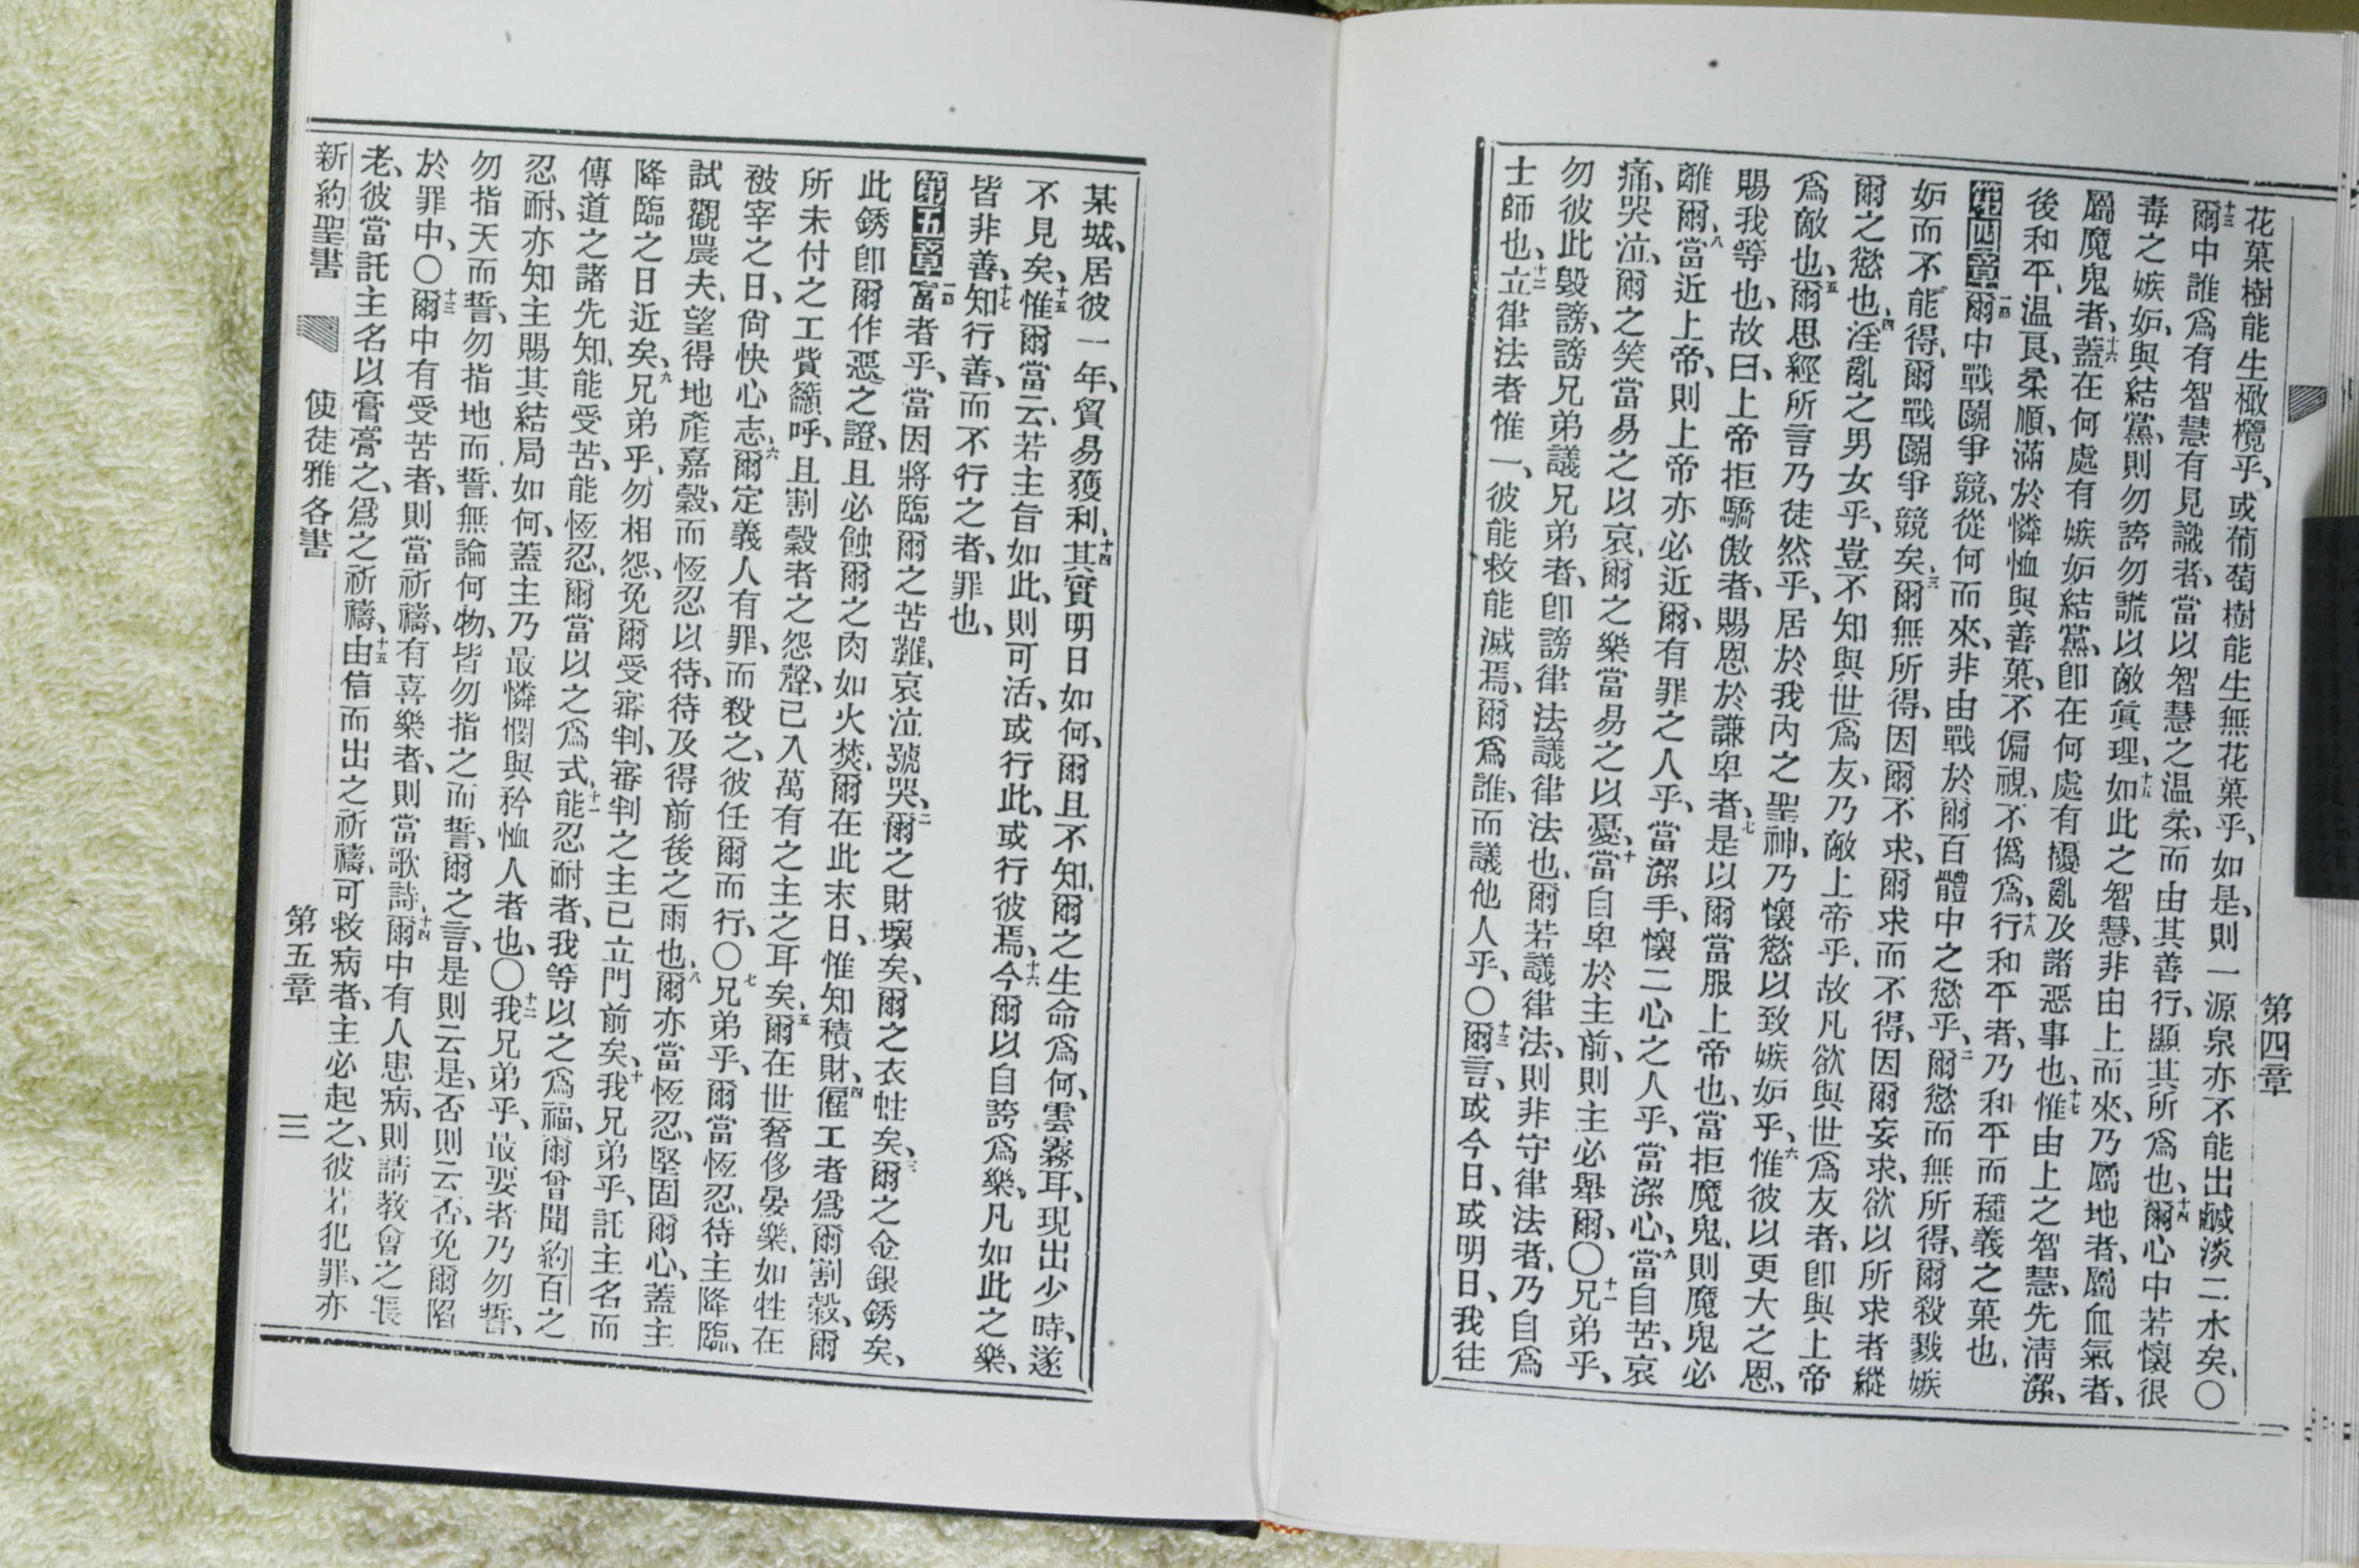 第四章
花菓樹能生橄欖乎、或葡萄樹能生無花菓乎、如是、則一源泉亦不能出鹹淡二水矣、〇
十三爾中誰爲有智慧有見識者、當以智慧之溫柔、而由其善行、顯其所爲也、十四爾心中若懷很
毒之嫉妬、與結黨、則勿誇勿謊以敵眞理、十五如此之智慧、非由上而來、乃屬地者、屬血氣者、
屬魔鬼者、十六蓋在何處有嫉妬結黨、卽在何處有擾亂及諸惡事也、十七惟由上之智慧、先淸潔、
後和平、溫良、柔順、滿於憐恤與善菓、不偏視、不僞爲、十八行和平者、乃和平而種義之菓也、
第四章一節爾中戰鬭爭競、從何而來、非由戰於爾百體中之慾乎、二爾慾而無所得、爾殺戮嫉
妬而不能得、爾戰鬭爭競矣、三爾無所得、因爾不求、爾求而不得、因爾妄求、欲以所求者縱
爾之慾也、四淫亂之男女乎、豈不知與世爲友、乃敵上帝乎、故凡欲與世爲友者、卽與上帝
爲敵也、五爾思經所言乃徒然乎、居於我內之聖神、乃懷慾以致嫉妬乎、六惟彼以更大之恩、
賜我等也、故曰、上帝拒驕傲者、賜恩於謙卑者、七是以爾當服上帝也、當拒魔鬼、則魔鬼必
離爾、八當近上帝、則上帝亦必近爾、有罪之人乎、當潔手、懷二心之人乎、當潔心、九當自苦、哀
痛、哭泣、爾之笑當易之以哀、爾之樂當易之以憂、十當自卑於主前、則主必舉爾、〇十一兄弟乎、
勿彼此毀謗、謗兄弟議兄弟者、卽謗律法議律法也、爾若議律法、則非守律法者、乃自爲
士師也、十二立律法者惟一、彼能救能滅焉、爾爲誰、而議他人乎、〇十三爾言、或今日、或明日、我往
某城、居彼一年、貿易獲利、十四其實明日如何、爾且不知、爾之生命爲何、雲霧耳、現出少時、遂
不見矣、十五惟爾當云、若主旨如此、則可活、或行此、或行彼焉、十六今爾以自誇爲樂、凡如此之樂、
皆非善、十七知行善、而不行之者、罪也、
第五章一節富者乎、當因將臨爾之苦難、哀泣號哭、二爾之財壞矣、爾之衣蛀矣、三爾之金銀銹矣、
此銹卽爾作惡之證、且必蝕爾之肉如火焚、爾在此末日、惟知積財、四傭工者爲爾割穀、爾
所未付之工貲籲呼、且割穀者之怨聲、已入萬有之主之耳矣、五爾在世奢侈晏樂、如牲在
被宰之日、尙快心志、六爾定義人有罪、而殺之、彼任爾而行、〇七兄弟乎、爾當恆忍、待主降臨、
試觀農夫、望得地產嘉穀、而恆忍以待、待及得前後之雨也、八爾亦當恆忍、堅固爾心、蓋主
降臨之日近矣、九兄弟乎、勿相怨、免爾受審判、審判之主已立門前矣、十我兄弟乎、託主名而
傳道之諸先知、能受苦、能恆忍、爾當以之爲式、十一能忍耐者、我等以之爲福、爾曾聞約百之
忍耐、亦知主賜其結局如何、蓋主乃最憐憫與矜恤人者也、〇十二我兄弟乎、最要者乃勿誓、
勿指天而誓、勿指地而誓、無論何物、皆勿指之而誓、爾之言、是則云是、否則云否、免爾陷
於罪中、〇十三爾中有受苦者、則當祈禱、有喜樂者、則當歌詩、十四爾中有人患病、則請敎會之長
老、彼當託主名以膏膏之、爲之祈禱、十五由信而出之祈禱、可救病者、主必起之、彼若犯罪、亦
新約聖書 使徒雅各書 第五章 三